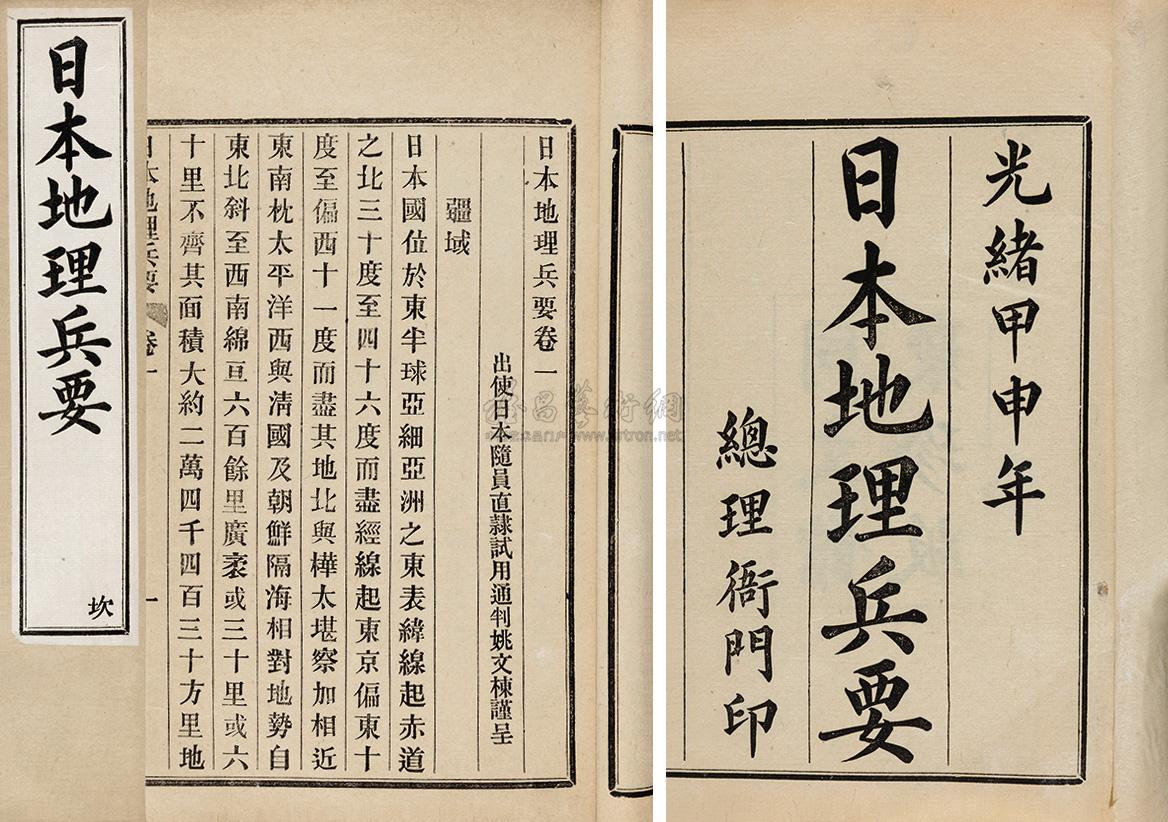 日本地理兵要
坎
日本地理兵要卷一
出使日本隨員直隸試用通判姚文棟謹呈
疆域
日本國位於東半球亞細亞洲之東表緯線起赤道
之北三十度至四十六度而盡經線起東京偏東十
度至偏西十一度而盡其地北與樺太堪察加相近
東南枕太平洋西與清國及朝鮮隔海相對地勢自
東北斜至西南綿亘六百餘里廣袤或三十里或六
十里不齊其面積大約二萬四千四百三十方里地
日本地理兵要
卷一
一
光緒甲申年
日本地理兵要
總理衙門印
www.artron.net